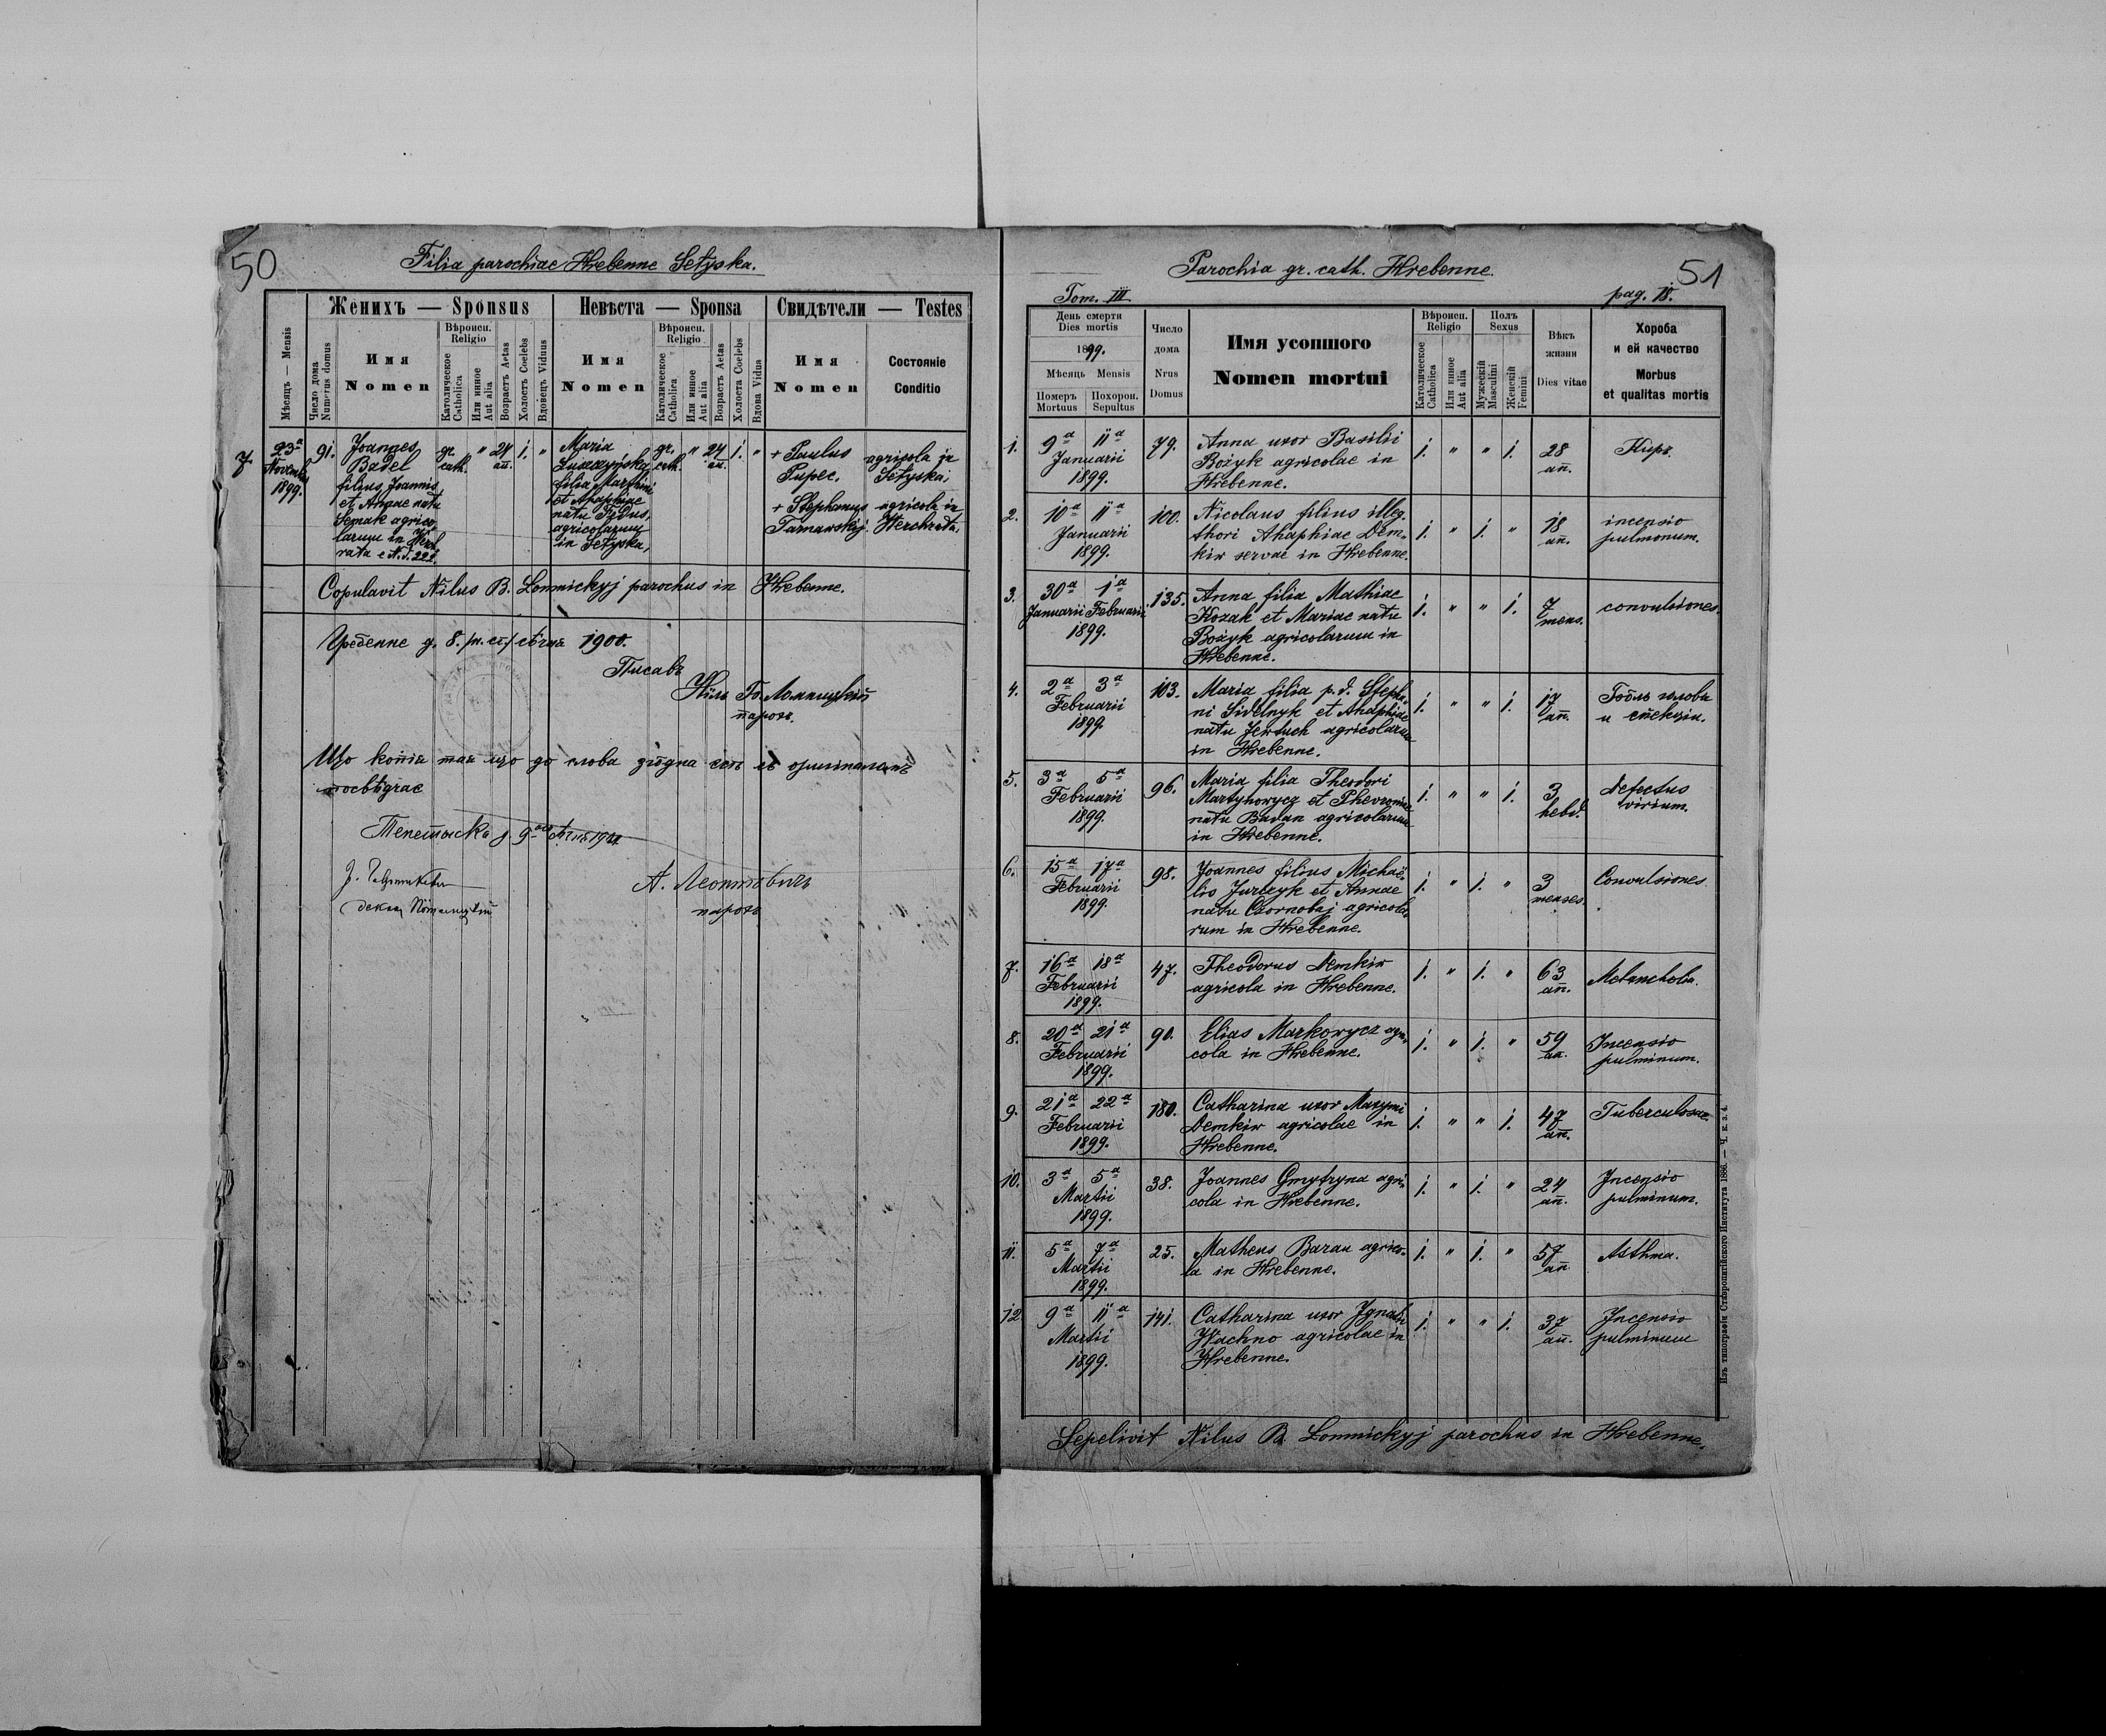 50
Filia parochiae Hrebenne Setyska.
Женихъ — Sponsus
Невѣста — Sponsa
Свидѣтели — Testes
Мѣсяць — Mensis
Число дома
Numerus domus
Имя
Nomen
Вѣроисп.
Religio
Католическое
Catholica
Или инное
Aut alia
Возрастъ Aetas
Холостъ Coelebs
Вдовецъ Viduus
Имя
Nomen
Вѣроисп.
Religio
Католическое
Catholica
Или инное
Aut alia
Возрастъ Aetas
Холоста Coelebs
Вдова Vidua
Имя
Nomen
Состоянie
Conditio
7.
23ª
1899.
91.
Joannes
Badel
filius Joannis
et Annae natu
Semak agrico-
larum in
gr.
cath.
"
24
an.
1.
"
Maria
filia Martini
et Ahaphiae
natu
agricolarum
in Setyska,
gr.
cath.
"
24
an.
1.
"
+ Paulus
Pupec.
agricola in
Setyska;
+ Stephanus
Tarnawskyj.
agricola in
Werchrata.
Copulavit Nilus B. Lomnickyj parochus in Hrebenne.
Гребенне д. 8. /н. ст./ сѣчня 1900.
Писавъ
Нилъ Ломницкій
парохъ.
Що копія тая що до слова згôдна есть съ оригиналомъ
посвѣдчае
А. Леонтовичь
парохъ
51
Parochia gr. cath. Hrebenne.
Tom. III.
pag. 18.
День смерти
Dies mortis
1899.
Мѣсяць Mensis
Померъ
Mortuus
Похорон.
Sepultus
Число
дома
Nrus
Domus
Имя усопшого
Nomen mortui
Вѣроисп.
Religio
Католическое
Catholica
Или инное
Aut alia
Полъ
Sexus
Мужескій
Masculini
Женскій
Femini
Вѣкъ
жизни
Dies vitae
Хороба
и ей качество
Morbus
et qualitas mortis
1.
9ª 11ª
Januarii
1899.
79.
Anna uxor Basilii
Bożyk agricolae in
Hrebenne.
1. " " 1.
28
an.
2.
10ª 11ª
Januarii
1899.
100.
Nicolaus filius illeg.
thori Ahaphiae Dem-
kiw servae in Hrebenne.
1. " 1. "
18
an.
incensio
pulmonum.
3.
30ª 1ª
Januarii Februarii
1899.
135.
Anna filia Mathiae
Kozak et Mariae natu
Bożyk agricolarum in
Hrebenne.
1. " " 1.
7
mens.
convulsiones.
4.
2ª 3ª
Februarii
1899.
103.
Maria filia p. d. Stepha-
ni Sidelnyk et Ahaphiae
natu Jewtuch agricolarum
in Hrebenne.
1. " " 1.
17
an.
5.
3ª 5ª
Februarii
1899.
96.
Maria filia Theodori
Martynowycz et Phevroniae
natu Badan agricolarum
in Hrebenne.
1. " " 1.
3
hebd.
defectus
virium.
6.
15ª 17ª
Februarii
1899.
98.
Joannes filius Michaë-
lis Jurczyk et Annae
natu Czornobaj agricola-
rum in Hrebenne.
1. " 1. "
3
menses.
Convulsiones.
7.
16ª 18ª
Februarii
1899.
47.
Theodorus Demkiw
agricola in Hrebenne.
1. " 1. "
63
an.
Melancholia.
8.
20ª 21ª
Februarii
1899.
90.
Elias Markowycz agri-
cola in Hrebenne.
1. " 1. "
59
an.
Incensio
pulminum.
9.
21ª 22ª
Februarii
1899.
180.
Catharina uxor Maxymi
Demkiw agricolae in
Hrebenne.
1. " " 1.
47
an.
Tuberculosae
10.
3ª 5ª
Martii
1899.
38.
Joannes Gmytryna agri-
cola in Hrebenne.
1. " 1. "
24
an.
Incensio
pulminum.
11.
5ª 7ª
Martii
1899.
25.
Matheus Baran agrico-
la in Hrebenne.
1. " 1. "
57
an.
Asthma.
12
9ª 11ª
Martii
1899.
141.
Catharina uxor Ignatii
Wachno agricolae in
Hrebenne.
1. " " 1.
37
an.
Incensio
pulminum
Sepelivit Nilus B. Lomnickyj parochus in Hrebenne.
Изъ типографіи Ставропигійского Института 1886. — Ч. к. з. 4.